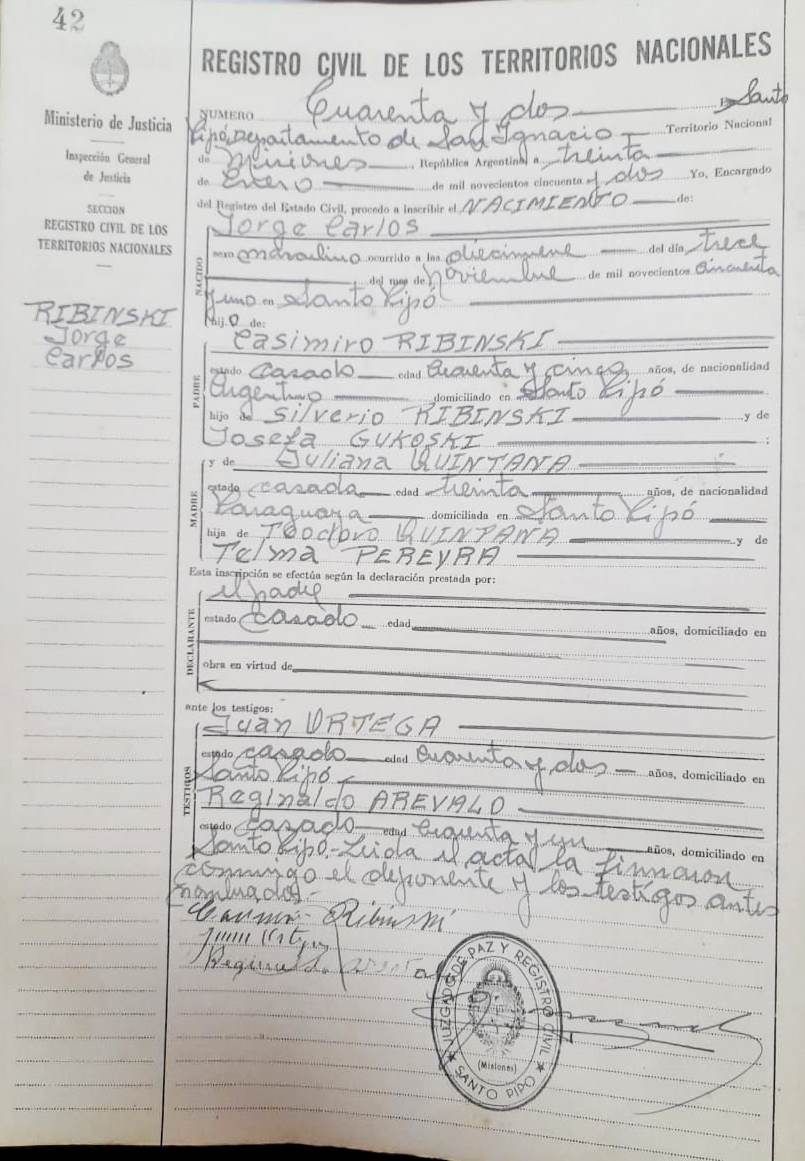 42
Ministerio de Justicia
Inspección General
de Justicia
SECCION
REGISTRO CIVIL DE LOS
TERRITORIOS NACIONALES
RIBINSKI
Jorge
Carlos
REGISTRO CIVIL DE LOS TERRITORIOS NACIONALES
NUMERO Cuarenta y dos En Santo
Pipó, Departamento de San Ignacio Territorio Nacional
de Misiones, República Argentina a treinta
de Enero de mil novecientos cincuenta y dos Yo, Encargado
del Registro del Estado Civil, procedo a inscribir el NACIMIENTO de:
Jorge Carlos
NACIDO
sexo masculino ocurrido a las diecinueve del día trece
del mes de Noviembre de mil novecientos cincuenta
y uno en Santo Pipó
hijo de:
PADRE
Casimiro RIBINSKI
estado Casado edad Cuarenta y cinco, años, de nacionalidad
Argentino domiciliado en Santo Pipó
hijo de Silverio RIBINSKI y de
Josefa GUKOSKI ;
MADRE
y de Juliana QUINTANA
estado casada edad treinta años, de nacionalidad
Paraguaya domiciliada en Santo Pipó
hija de Teodoro QUINTANA y de
Telma PEREYRA
Esta inscripción se efectúa según la declaración prestada por:
DECLARANTE
el padre
estado Casado edad años, domiciliado en
obra en virtud de
ante los testigos:
TESTIGOS
Juan ORTEGA
estado casado edad Cuarenta y dos años, domiciliado en
Santo Pipó
Reginaldo AREVALO
estado Casado edad cincuenta y un años, domiciliado en
Santo Pipó.- Leida el acta la firmaron
conmigo el deponente y los testigos antes
nombrados.-
Ribinski
JUZGADO DE PAZ Y REGISTRO CIVIL
(Misiones)
SANTO PIPO